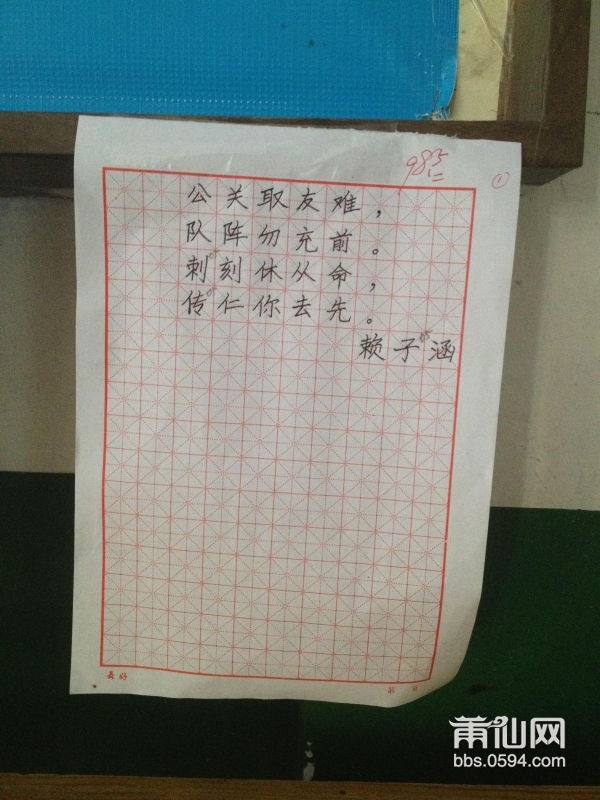 98分
公关取友难，
队阵勿充前。
刺刻休从命，
传仁你去先。
赖子涵
莆仙网
bbs.0594.com